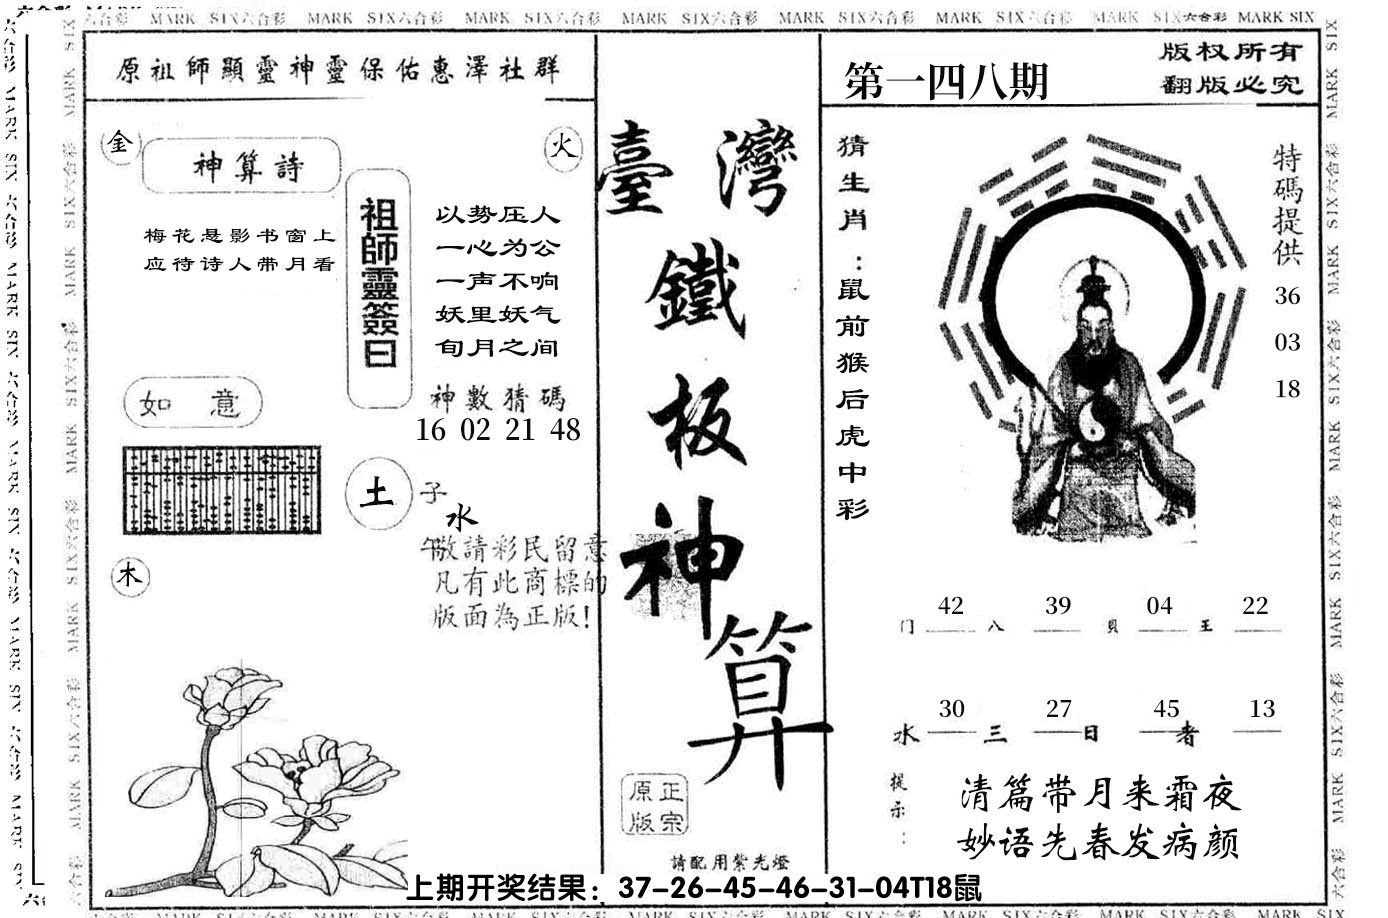 MARK SIX六合彩 MARK SIX六合彩 MARK SIX六合彩 MARK SIX六合彩 MARK SIX六合彩 MARK SIX六合彩 MARK SIX六合彩 MARK SIX六合彩 MARK SIX
原祖師顯靈神靈保佑惠澤社群
金
火
神算詩
梅花悬影书窗上
应待诗人带月看
祖師靈簽曰
以势压人
一心为公
一声不响
妖里妖气
旬月之间
神數猜碼
16 02 21 48
如意
土
子
水
午
木
敬請彩民留意
凡有此商標的
版面為正版!
臺灣
鐵
板
神
算
正宗
原版
請配用紫光燈
第一四八期
版权所有
翻版必究
猜生肖:鼠前猴后虎中彩
特碼提供
36
03
18
42 39 04 22
门 八 貝 王
30 27 45 13
水 三 日 者
提示:
清篇带月来霜夜
妙语先春发病颜
上期开奖结果：37-26-45-46-31-04T18鼠